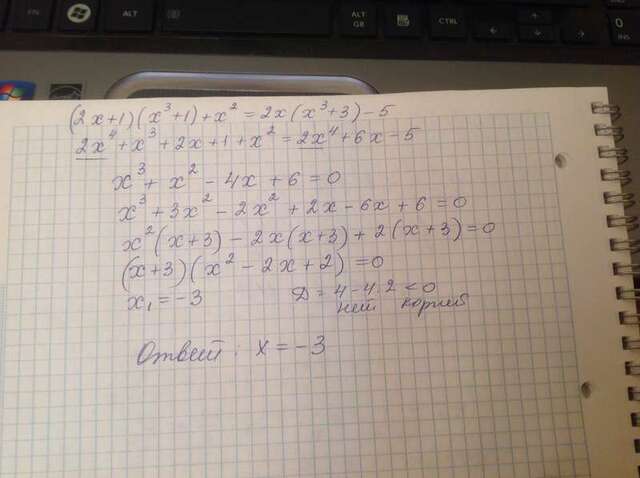 FN
ALT
ALT GR
CTRL
0
INS
(2x+1)(x³+1)+x²=2x(x³+3)-5
2x⁴+x³+2x+1+x²=2x⁴+6x-5
x³+x²-4x+6=0
x³+3x²-2x²+2x-6x+6=0
x²(x+3)-2x(x+3)+2(x+3)=0
(x+3)(x²-2x+2)=0
x₁=-3 D=4-4·2<0
нет корней
Ответ: x=-3